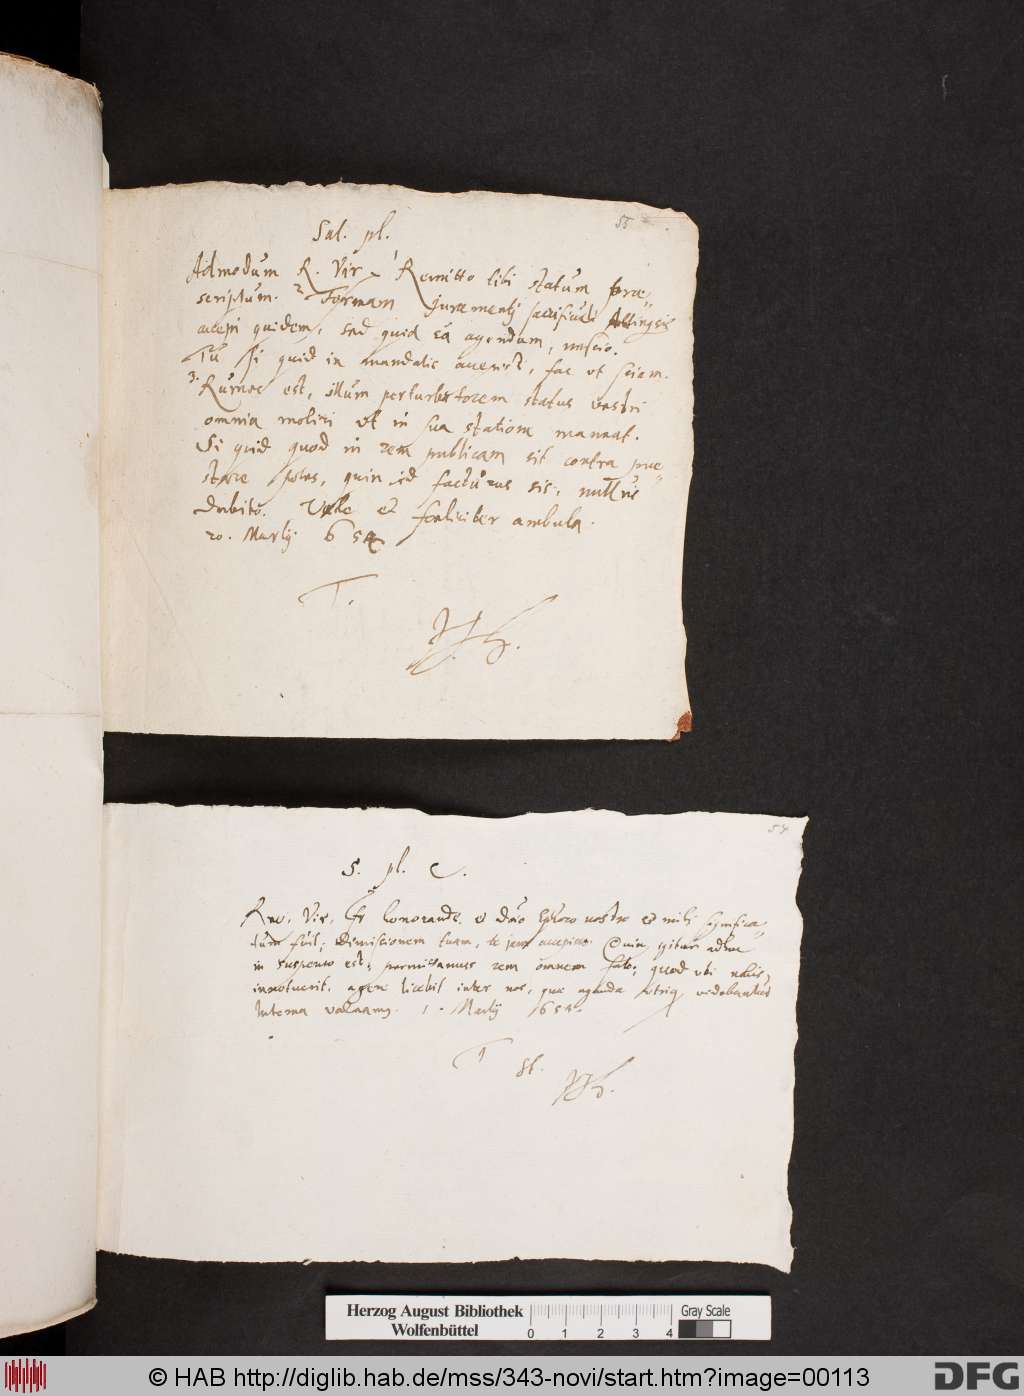 55
Sal. pl.
Admodum R. Vir. 1 Remitto tibi statum prae-
scriptum. 2 Formam juramentj sacrificuli
accepi quidem, sed quid eâ agendum, nescio.
Tu si quid in mandatis acceperis, fac ut sciam.
3. Rumor est, illum perturbatorem status vestri
omnia moliri ut in sua statione maneat.
Si quid quod in rem publicam sit contra prae-
stare potes, quin id facturus sis, nullus
dubito. Vale et feliciter ambula.
20. Martij 654
T.
54
S. pl. C.
Rev. Vir, Fr honorande. à Dno Ephoro nostro et mihi significa-
tum fuit, Dimissionem tuam, te jam accepisse. Quia igitur adhuc
in suspenso est, permittamus rem omnem fato; quod ubi nobis
innotuerit, agere licebit inter nos, quae agenda utriq videbuntur
Interea valeamus. 1. Martij 654.
T
St.
Herzog August Bibliothek
Wolfenbüttel
0 1 2 3 4
Gray Scale
© HAB http://diglib.hab.de/mss/343-novi/start.htm?image=00113
DFG